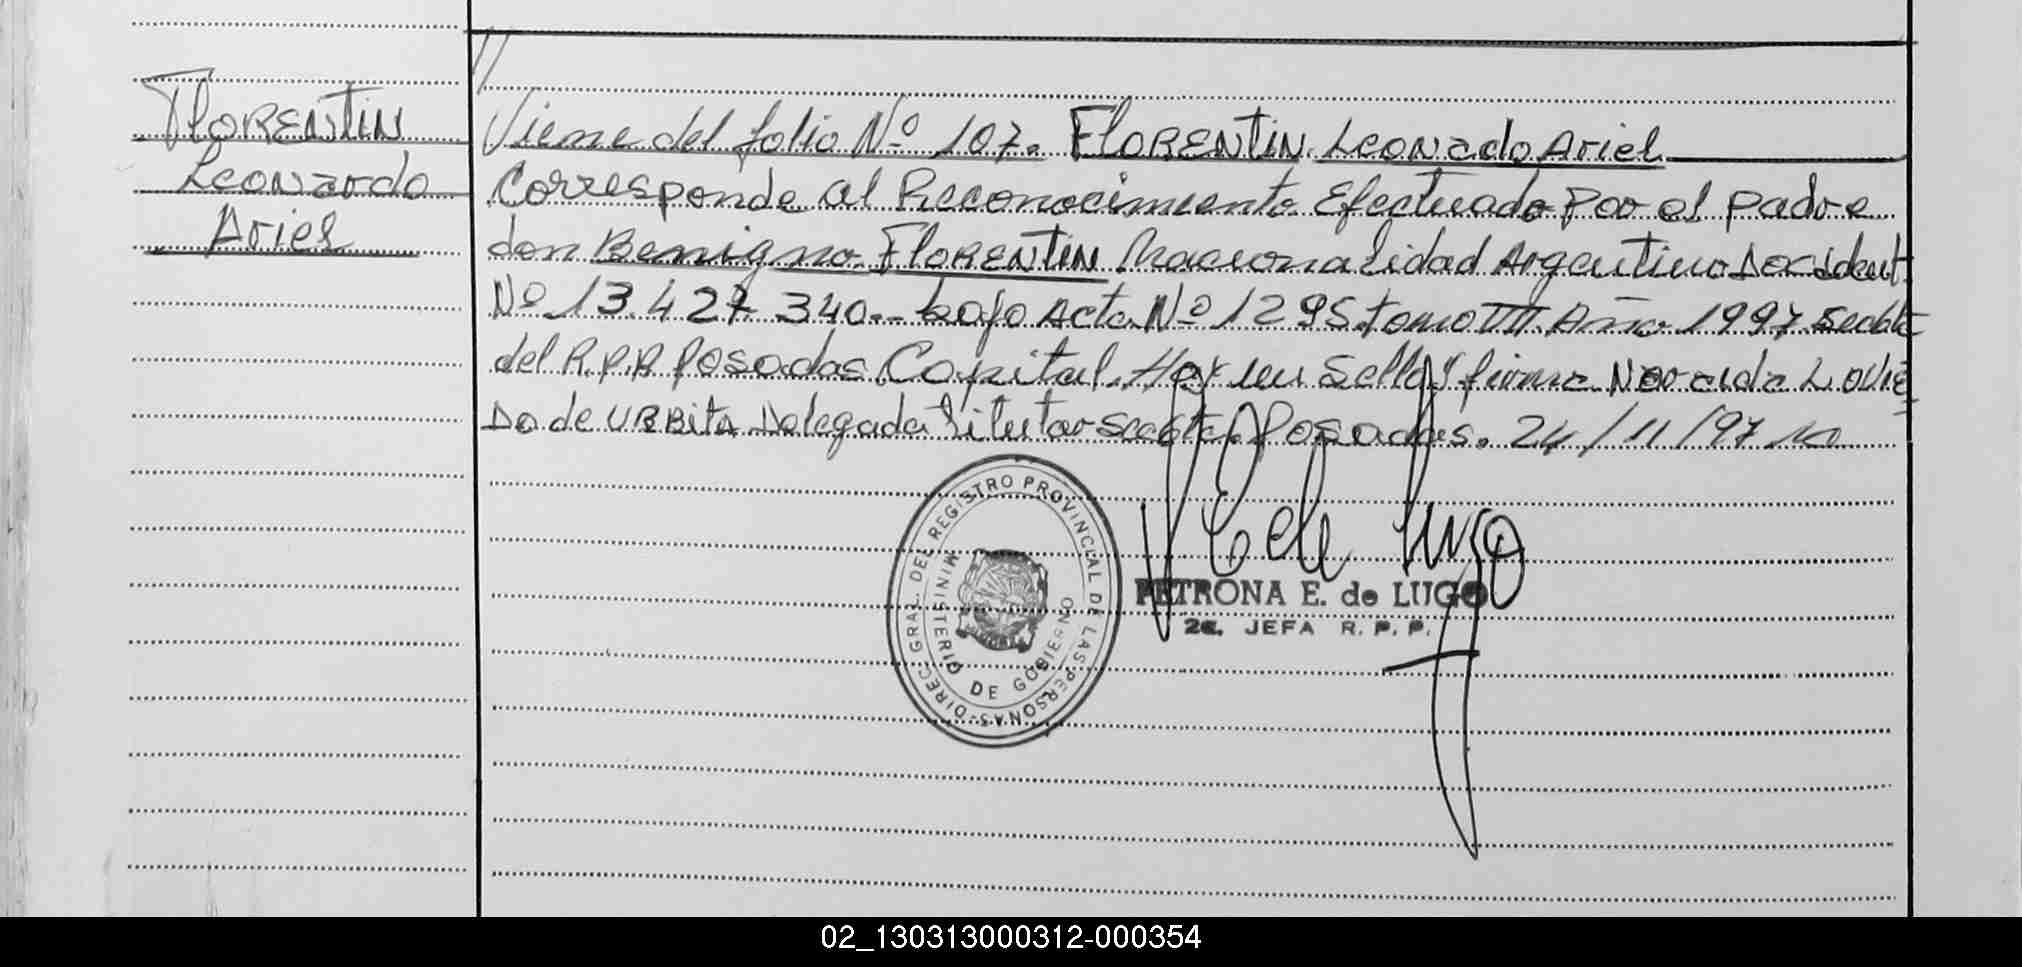 FLORENTIN
Leonardo
Ariel
//
Viene del folio Nº 107. FLORENTIN Leonardo Ariel
Corresponde al Reconocimiento Efectuado Por el padre
don Benigno FLORENTIN Nacionalidad Argentino Doc. Ident.
Nº 13.427.340.- bajo Acta Nº 1295 tomo VII Año 1997 Secc 1ª
del R.P.P. Posadas Capital. Hay un Sello y firma
DO de URBITA Delegada Titular Secc 1ª Posadas. 24/11/97
DIREC. GRAL. DEL REGISTRO PROVINCIAL DE LAS PERSONAS
MINISTERIO DE GOBIERNO
PETRONA E. de LUGO
2a. JEFA R. P. P.
02_130313000312-000354